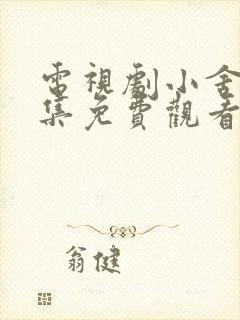 電視劇小舍
集免費觀看
翁健